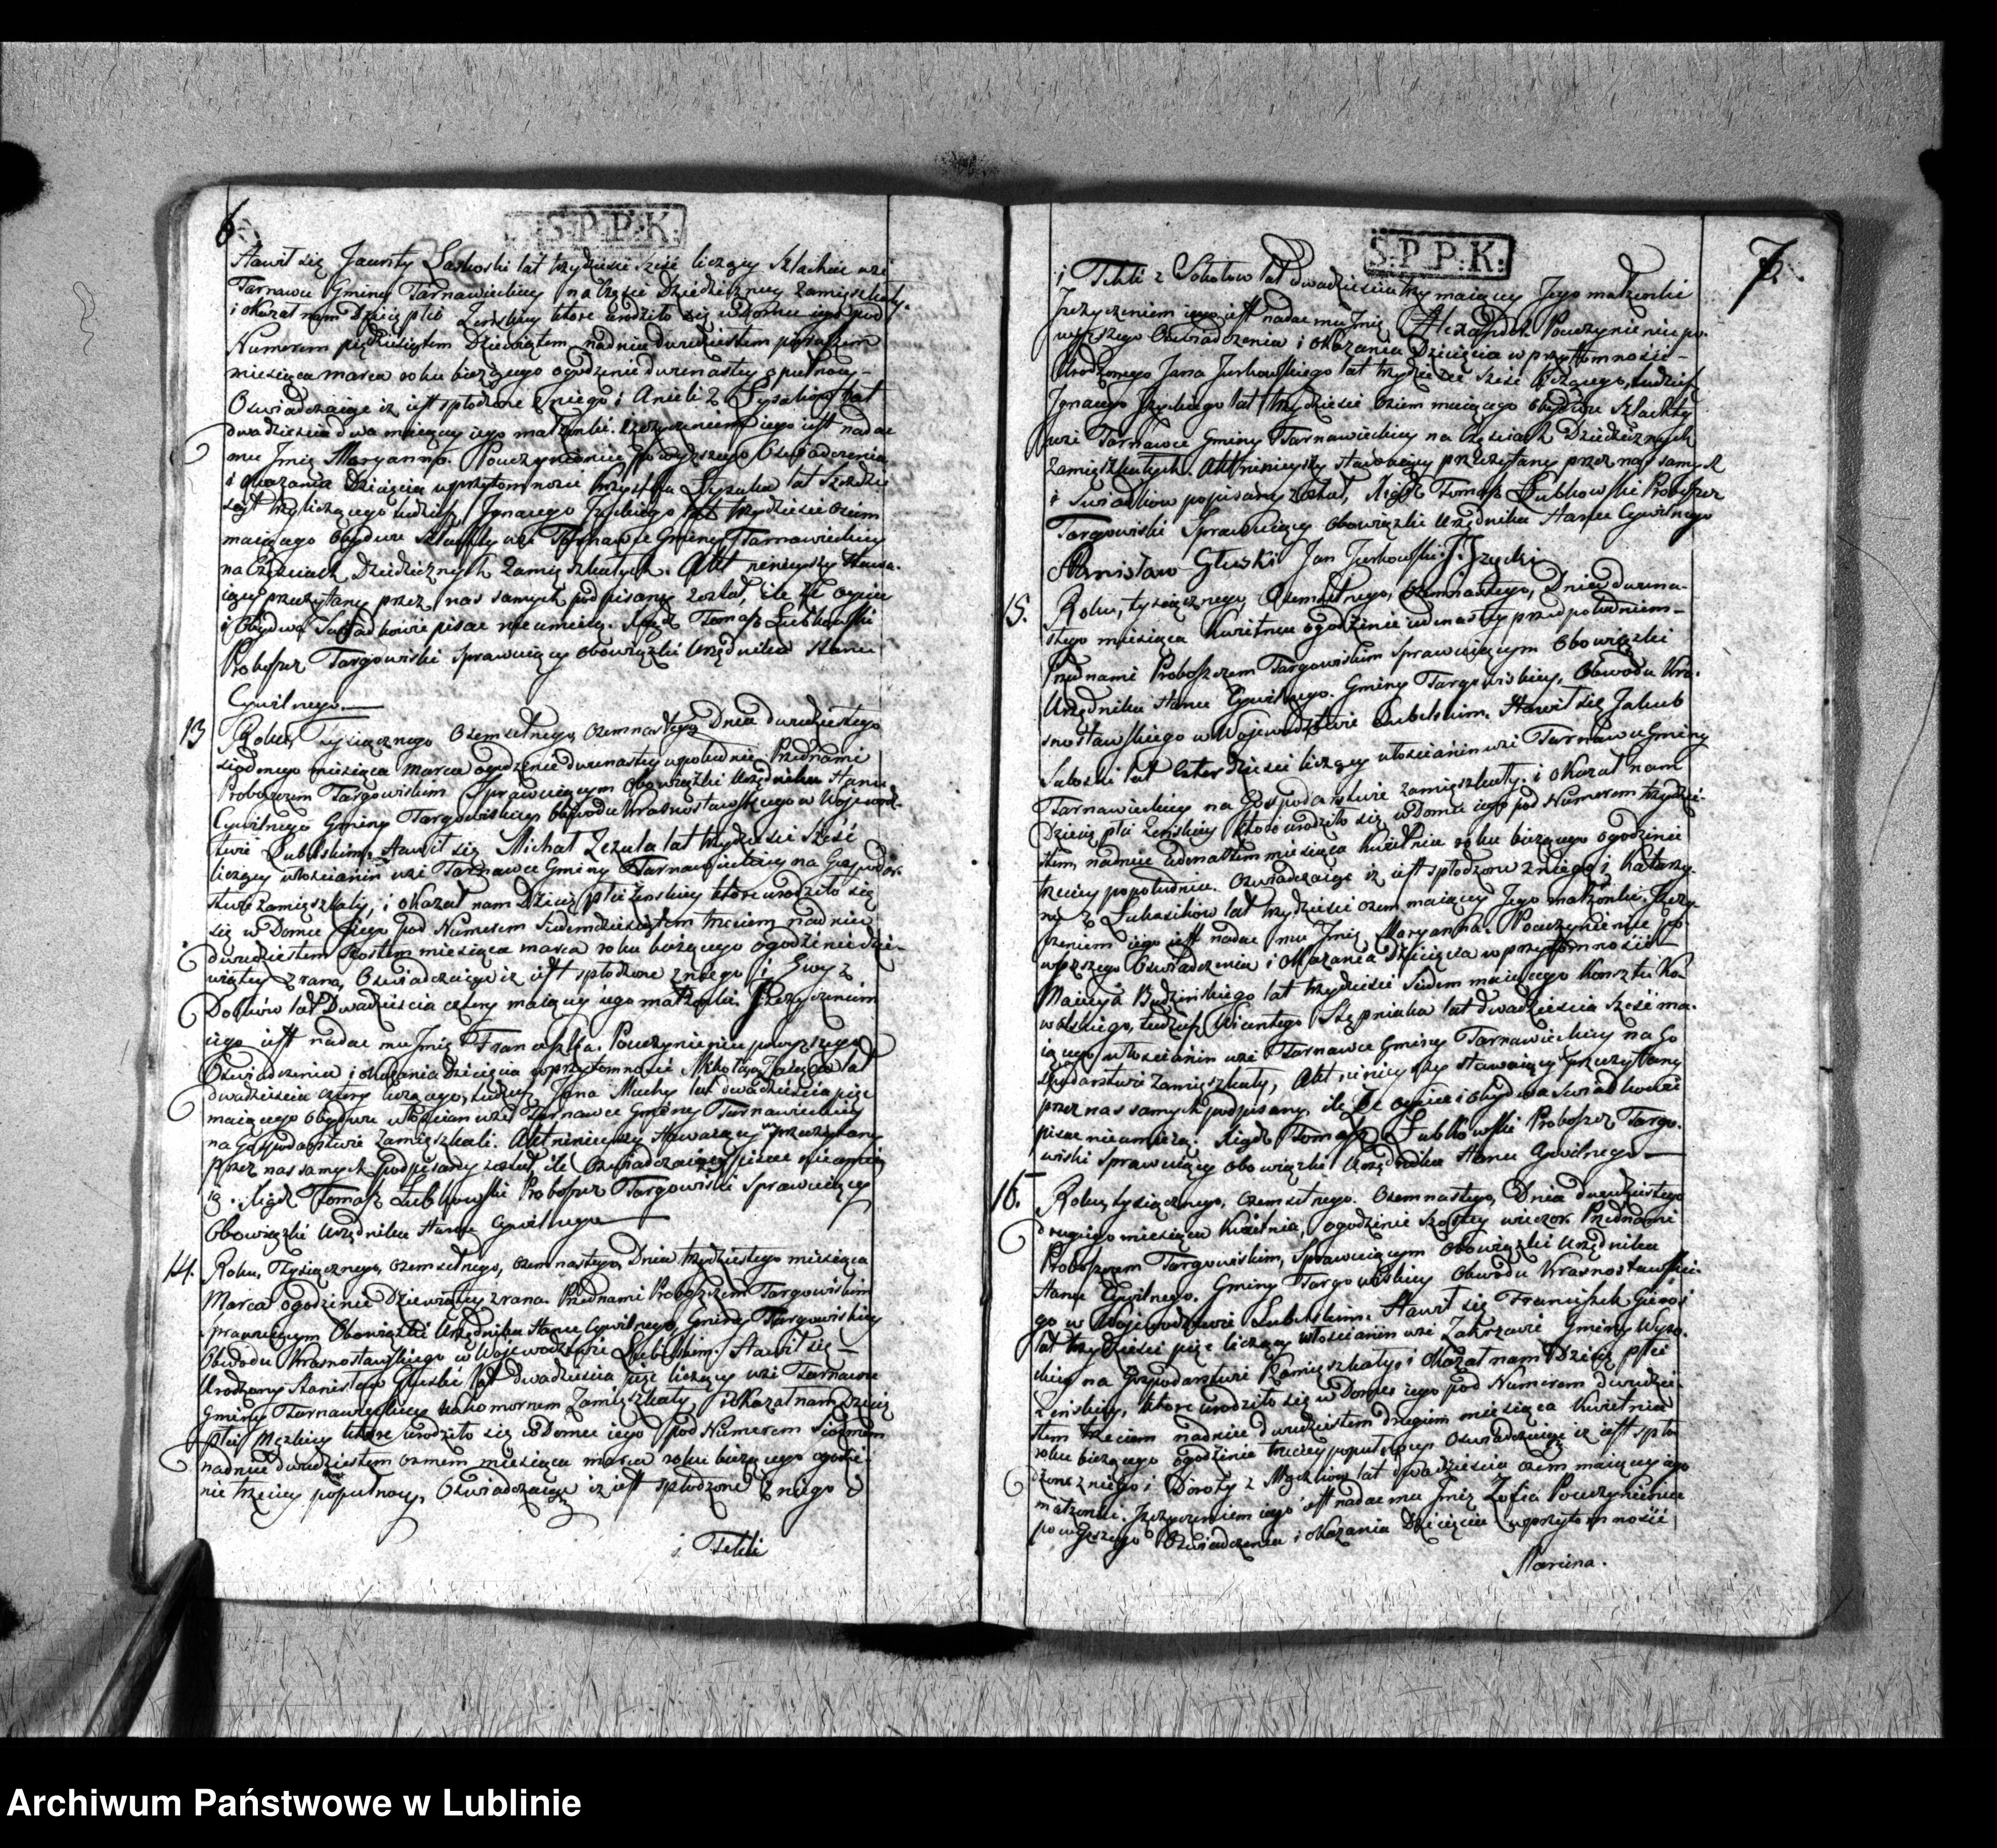 6
S.P.P.K.
Stawił się Jacenty Laskoski lat trzydzieści sześć liczący Szlachcic wsi
Tarnawce Gminy Tarnawieckiey na Części Dziedziczney zamięszkały.
i okazał nam Dziecię płci Żenskiey ktore urodziło się w domu iego pod
Numerem pięćdziesiątem Dziewiątem na dniu dwudziestem pierwszem
miesiąca marca roku bieżącego ogodzinie dwunastey opułnocy –
Oswiadczaiąc iż iest spłodzone zniego i Anieli z Łysakow lat
dwadziescia dwa maiącey iego małzonki. i życzeniem iego iest nadac
mu Jmię Maryanna. Pouczynieniu powyzszego Oswiadczenia
i okazania Dziecięcia wprzytomnosci Krzysztofa Łysaka lat Sześćdzie
siąt trzy liczącego tudzież Jgnacego Jzyckiego lat trzydziesci osiem
maiącego obydwu Szlachty wsi Tarnawce Gminy Tarnawieckiey
na Częsciach Dziedzicznych Zamięszkałych. Akt ninieyszy stawa-
iącym przeczytany przez nas samych podpisany został, ile że oyciec
i obydwa Swiadkowie pisac nie umieią. Xiądz Tomasz Lubkowski
Proboszcz Targowiski sprawuiący obowiązki Urzędnika Stanu
Cywilnego.
13
Roku, Tysiącznego Osemsetnego, Osemnastego, Dnia dwudziestego
siodmego miesiąca Marca ogodzinie dwunastey wpołudnie Przednami
Proboszczem Targowiskim Sprawuiącym obowiązki Urzędnika Stanu
Cywilnego Gminy Targowiskiey obwodu Krasnostawskiego w Wojewodz-
twie Lubelskim. Stawił się Michał Zezula lat trzydziesci Sześć
liczący włoscianin wsi Tarnawce Gminy Tarnawieckiey na Gospodar-
stwie zamięszkały, i okazał nam Dziecię płci Żenskiey ktore urodziło się
się w Domu iego pod Numerem Siedemdziesiątem trzecim na dniu
dwudziestem szostem miesiąca marca roku bieżącego ogodzinie dzie-
wiątey z rana, Oswiadczaiąc iż iest spłodzone zniego i Ewy z
lat Dwadziescia cztery maiącey iego małzonki. Jżyczeniem
iego iest nadac mu Jmię Franciszka. Pouczynieniu powyzszego
Oswiadczenia i okazania Dziecięcia wprzytomnosci Mikołaja Zaiąca lat
dwadziescia cztery liczącego, tudzież Jana Muchy lat dwadziescia pięc
maiącego obydwu włoscian wsi Tarnawce Gminy Tarnawieckiey
na Gospodarstwie zamięszkali. Akt ninieyszy stawaiącym przeczytany
przez nas samych podpisany został ile Oswiadczaiący pisac nie umie
ią. Xiądz Tomasz Lubkowski Proboszcz Targowiski Sprawuiący
obowiązki Urzędnika Stanu Cywilnego
14.
Roku, Tysiącznego, Osemsetnego, Osemnastego, Dnia trzydziestego miesiąca
Marca ogodzinie Dziewiątey z rana. Przednami Proboszczem Targowiskim
sprawuiącym Obowiązki Urzędnika Stanu Cywilnego, Gminy Targowiskiey
Obwodu Krasnostawskiego w Wojewodztwie Lubelskim. Stawił się –
Urodzony Stanisław Głuski lat dwadziescia pięc liczący wsi Tarnawce
Gminy Tarnawieckiey na komornem Zamięszkały, i okazał nam Dziecię
płci Męzkiey ktore urodziło się w Domu iego pod Numerem Siodmem
na dniu dwudziestem osmem miesiąca marca roku bieżącego ogodzi-
nie trzeciey popułnocy, Oswiadczaiąc iż iest spłodzone zniego
i Tekli
7.
S.P.P.K.
i Tekli z Sokołow lat dwadziescia trzy maiącey Jego małzonki
Jżyczeniem iego iest nadac mu Jmię Alexander Pouczynieniu po-
wyzszego Oswiadczenia i okazania Dziecięcia w przytomności –
Urodzonego Jana Jurkowskiego lat trzydziesci sześć liczącego, tudzież
Jgnacego Jzyckiego lat trzydziesci osiem maiącego obydwu Szlachty
wsi Tarnawce Gminy Tarnawieckiey na Częściach Dziedzicznych
Zamięszkałych. Akt ninieyszy stawaiącym przeczytany przez nas samych
i Swiadkow popisany został, Xiądz Tomasz Lubkowski Proboszcz
Targowiski Sprawuiący Obowiązki Urzędnika Stanu Cywilnego
Stanisław Głuski Jan Jurkowski. J. Jzycki
15.
Roku, tysiącznego, Osemsetnego, osemnastego, Dnia dwuna-
stego miesiąca Kwietnia ogodzinie iedenastey przedpołudniem –
Przednami Proboszczem Targowiskim sprawuiącym obowiązki
Urzędnika Stanu Cywilnego. Gminy Targowiskiey, Obwodu Kra-
snostawskiego w Wojewodztwie Lubelskim. Stawił się Jakub
lat czterdziesci liczący włościanin wsi Tarnawce Gminy
Tarnawieckiey na Gospodarstwie zamięszkały. i okazał nam
Dziecię płci Żenskiey ktore urodziło się w Domu iego pod Numerem trzydzie-
stem, na dniu iedenastem miesiąca Kwietnia roku bieżącego ogodzinie
trzeciey popołudniu. Oswiadczaiąc iż iest spłodzone zniego i Katarzy-
ny z Łukasikow lat trzydziesci osem maiącey Jego małzonki. Jżzy-
czeniem iego iest nadac mu Jmię Maryanna. Pouczynieniu po
wyzszego Oswiadczenia i okazania Dziecięcia w przytomnosci –
Macieja Budzińskiego lat trzydziesci siedem maiącego
tudzież Wicentego Stępniaka lat dwadziescia sześć ma-
iącego włoscianin wsi Tarnawce Gminy Tarnawieckiey na Go
spodarstwie zamięszkały, Akt ninieyszy stawaiącym przeczytany
przez nas samych podpisany, ile że oyciec i obydwa Swiadkowie
pisac nieumieią. Xiądz Tomasz Lubkowski Proboszcz Targo-
wiski sprawuiący obowiązki Urzędnika Stanu Cywilnego –
16.
Roku, tysiącznego, osemsetnego. Osemnastego, Dnia dwudziestego
drugiego miesiąca Kwietnia, ogodzinie szostey wieczor. Przednami
Proboszczem Targowiskim, Sprawuiącym Obowiązki Urzędnika
Stanu Cywilnego. Gminy Targowiskiey Obwodu Krasnostawskie-
go w Wojewodztwie Lubelskim. Stawił się Franciszek
lat trzydziesci pięc liczący włościanin wsi Zakrzowie Gminy Wyso-
ckiey na Gospodarstwie Zamięszkały, i okazał nam Dziecię płci
Żenskiey, ktore urodziło się w Domu iego pod Numerem dwudzie-
stem trzeciem na dniu dwudziestem drugiem miesiąca Kwietnia
roku bieżącego ogodzinie trzeciey popułnocy Oswiadczaiąc iż iest spło
dzone zniego i Doroty z lat dwadziescia osem maiącey iego
małzonki. Jżzyczeniem iego iest nadac mu Jmię Zofia Pouczynieniu
powyzszego Oswiadczenia i okazania Dziecięcia w przytomnosci
Marcina.
Archiwum Państwowe w Lublinie